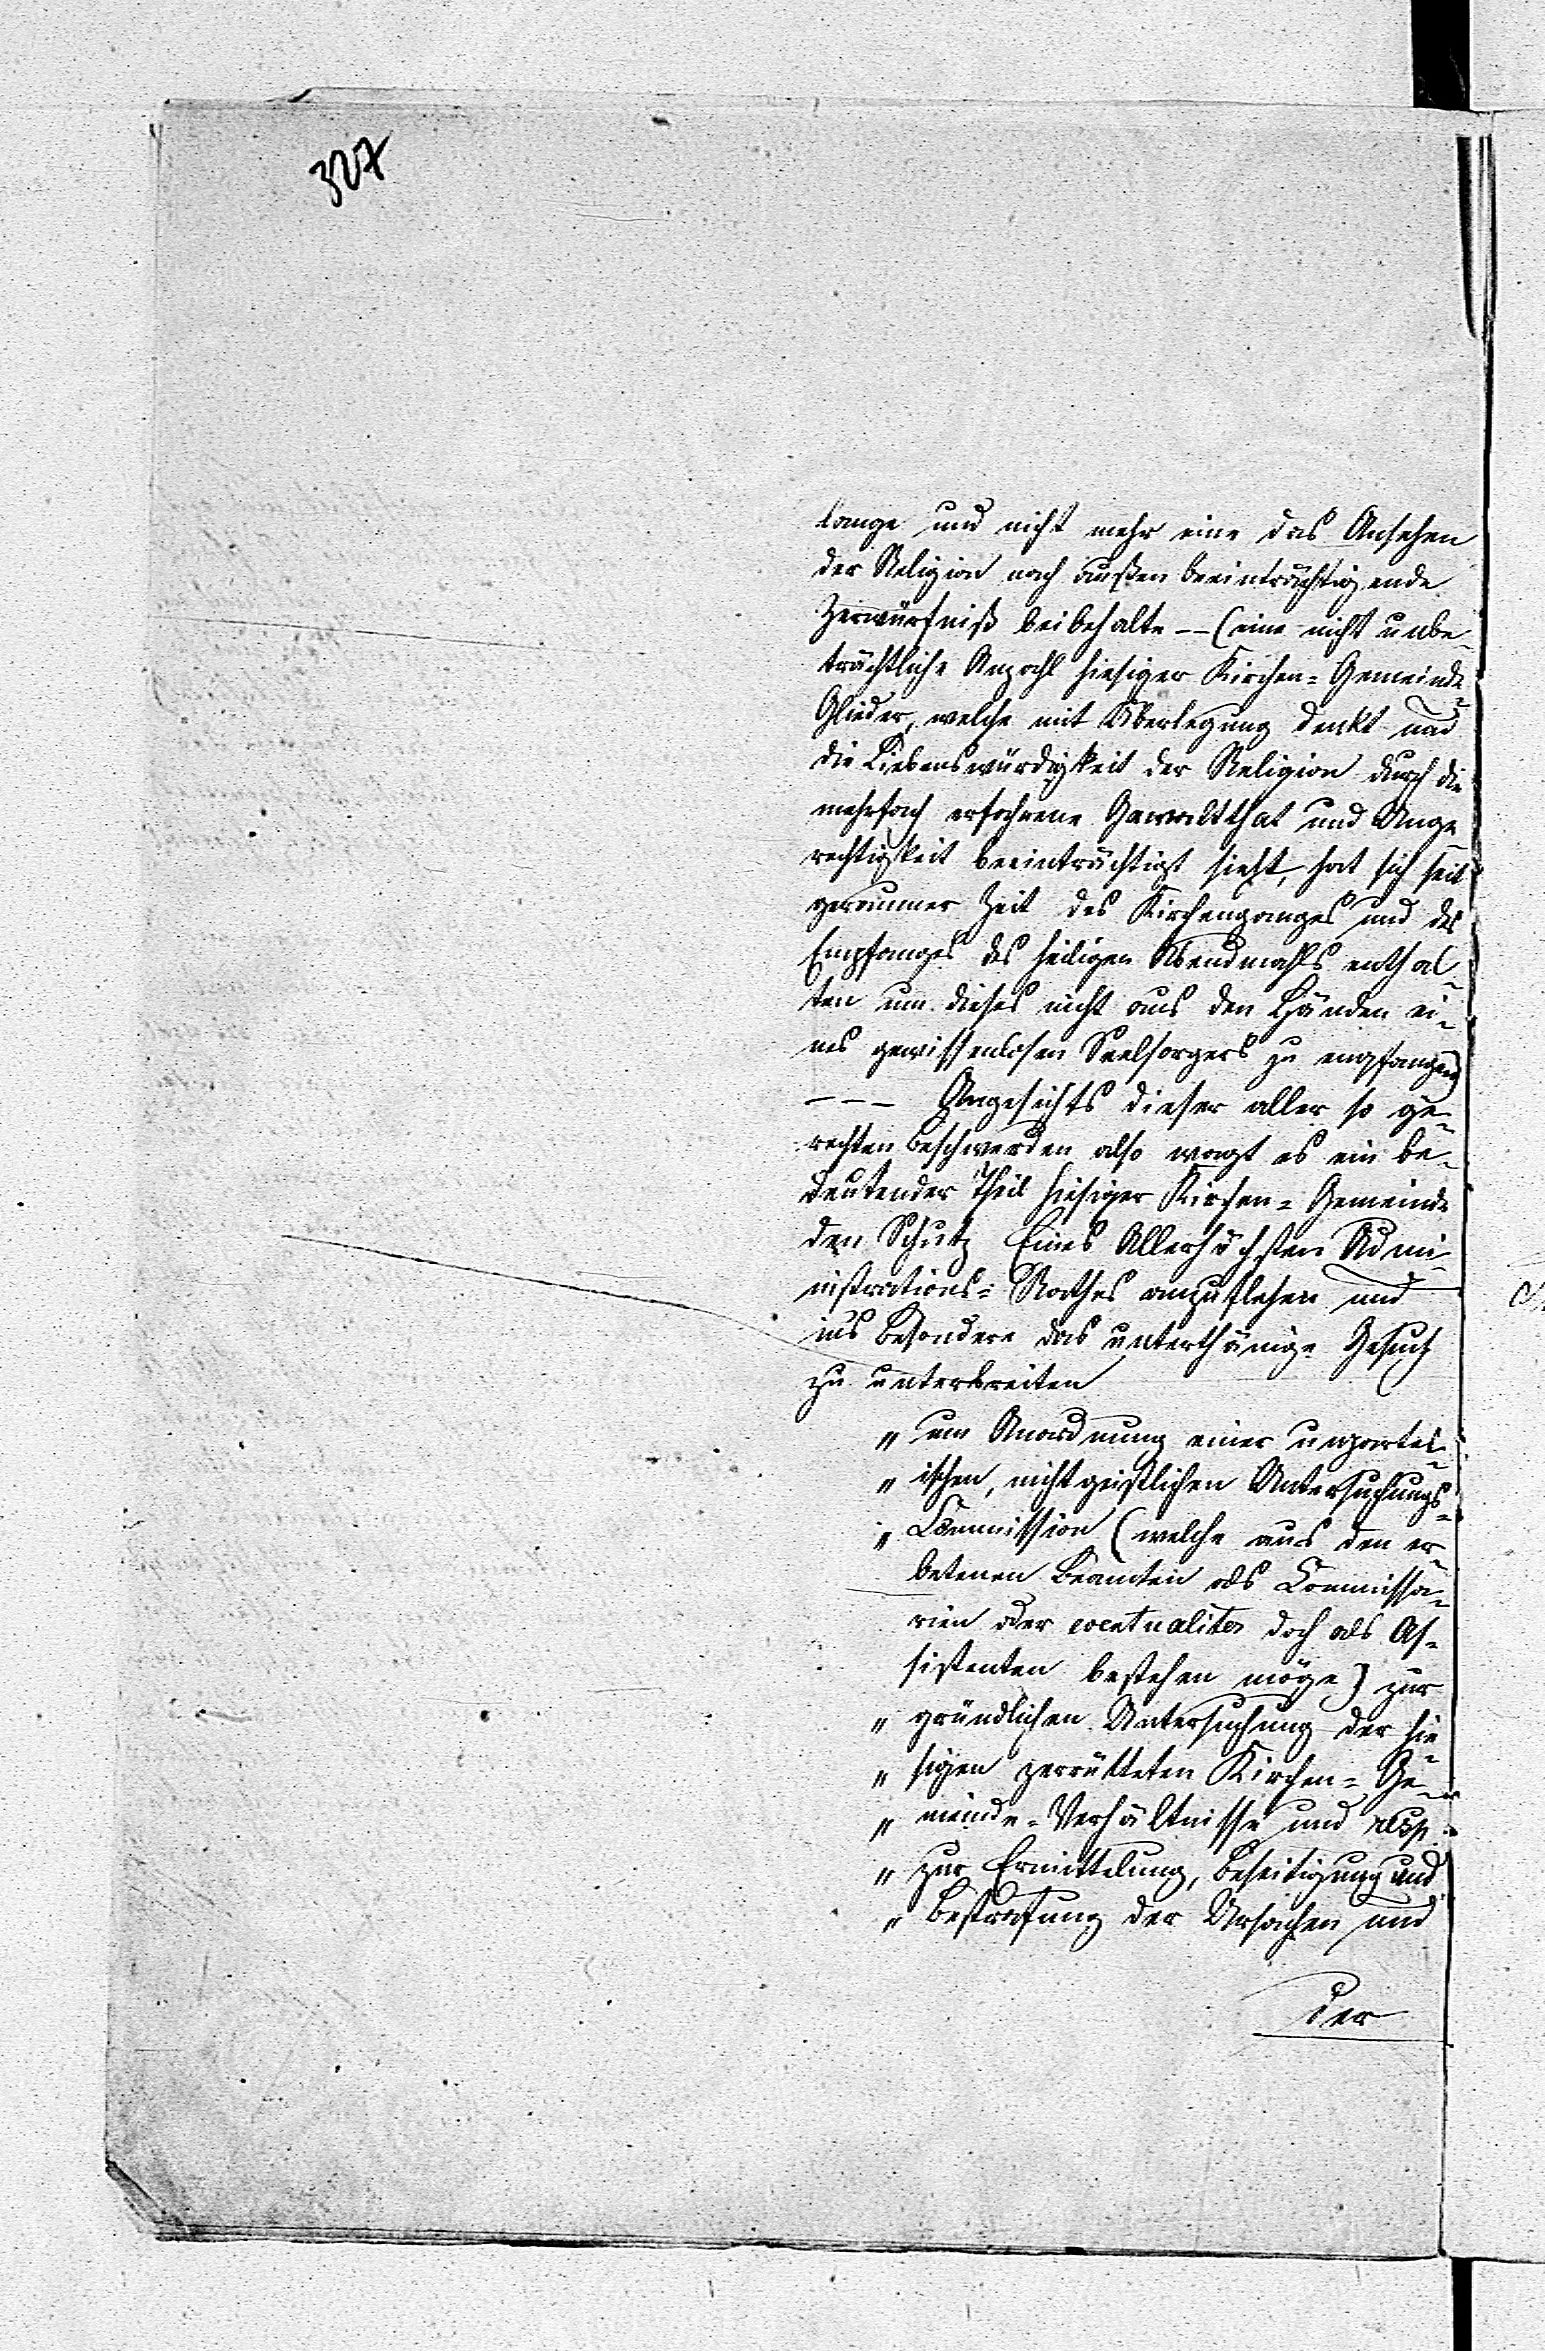 327
lange und nicht mehr eine das Ansehen
der Religion nach außen beeinträchtigende
Zerwürfniß beibehalte -- (eine nicht unbe-
trächtliche Anzahl hiesiger Kirchen-Gemeinde-
Glieder, welche mit Überlegung denkt und
die Liebenswürdigkeit der Religion durch die
mehrfach erfahrene Gewaltthat und Unge
rechtigkeit beeinträchtigt sieht, hat sich seit
geraumer Zeit des Kirchenganges und des
Empfanges des heiligen Abendmahls enthal-
ten um dieses nicht aus den Händen ei-
nes gewissenlosen Seelsorgers zu empfangen)
--- Angesichts dieser aller so ge-
rechten Beschwerden also wagt es ein be-
deutender Theil hiesiger Kirchen-Gemeinde
den Schutz Eines Allerhöchsten Admi-
nistrations-Rathes anzuflehen und
ins Besondere das unterthänige Gesuch
zu unterbreiten
„ um Anordnung einer unpartei-
„ ischen, nicht geistlichen Untersuchungs-
„ Commission (welche aus den er-
betenen Beamten als Commissa-
rien oder doch als As-
sistenten bestehen möge) zur
„ gründlichen Untersuchung der hie-
„ sigen zerrütteten Kirchen-Ge-
„ meinde-Verhältnisse und resp.
„ zur Ermittelung, Beseitigung und
„ Bestrafung der Ursachen und
der